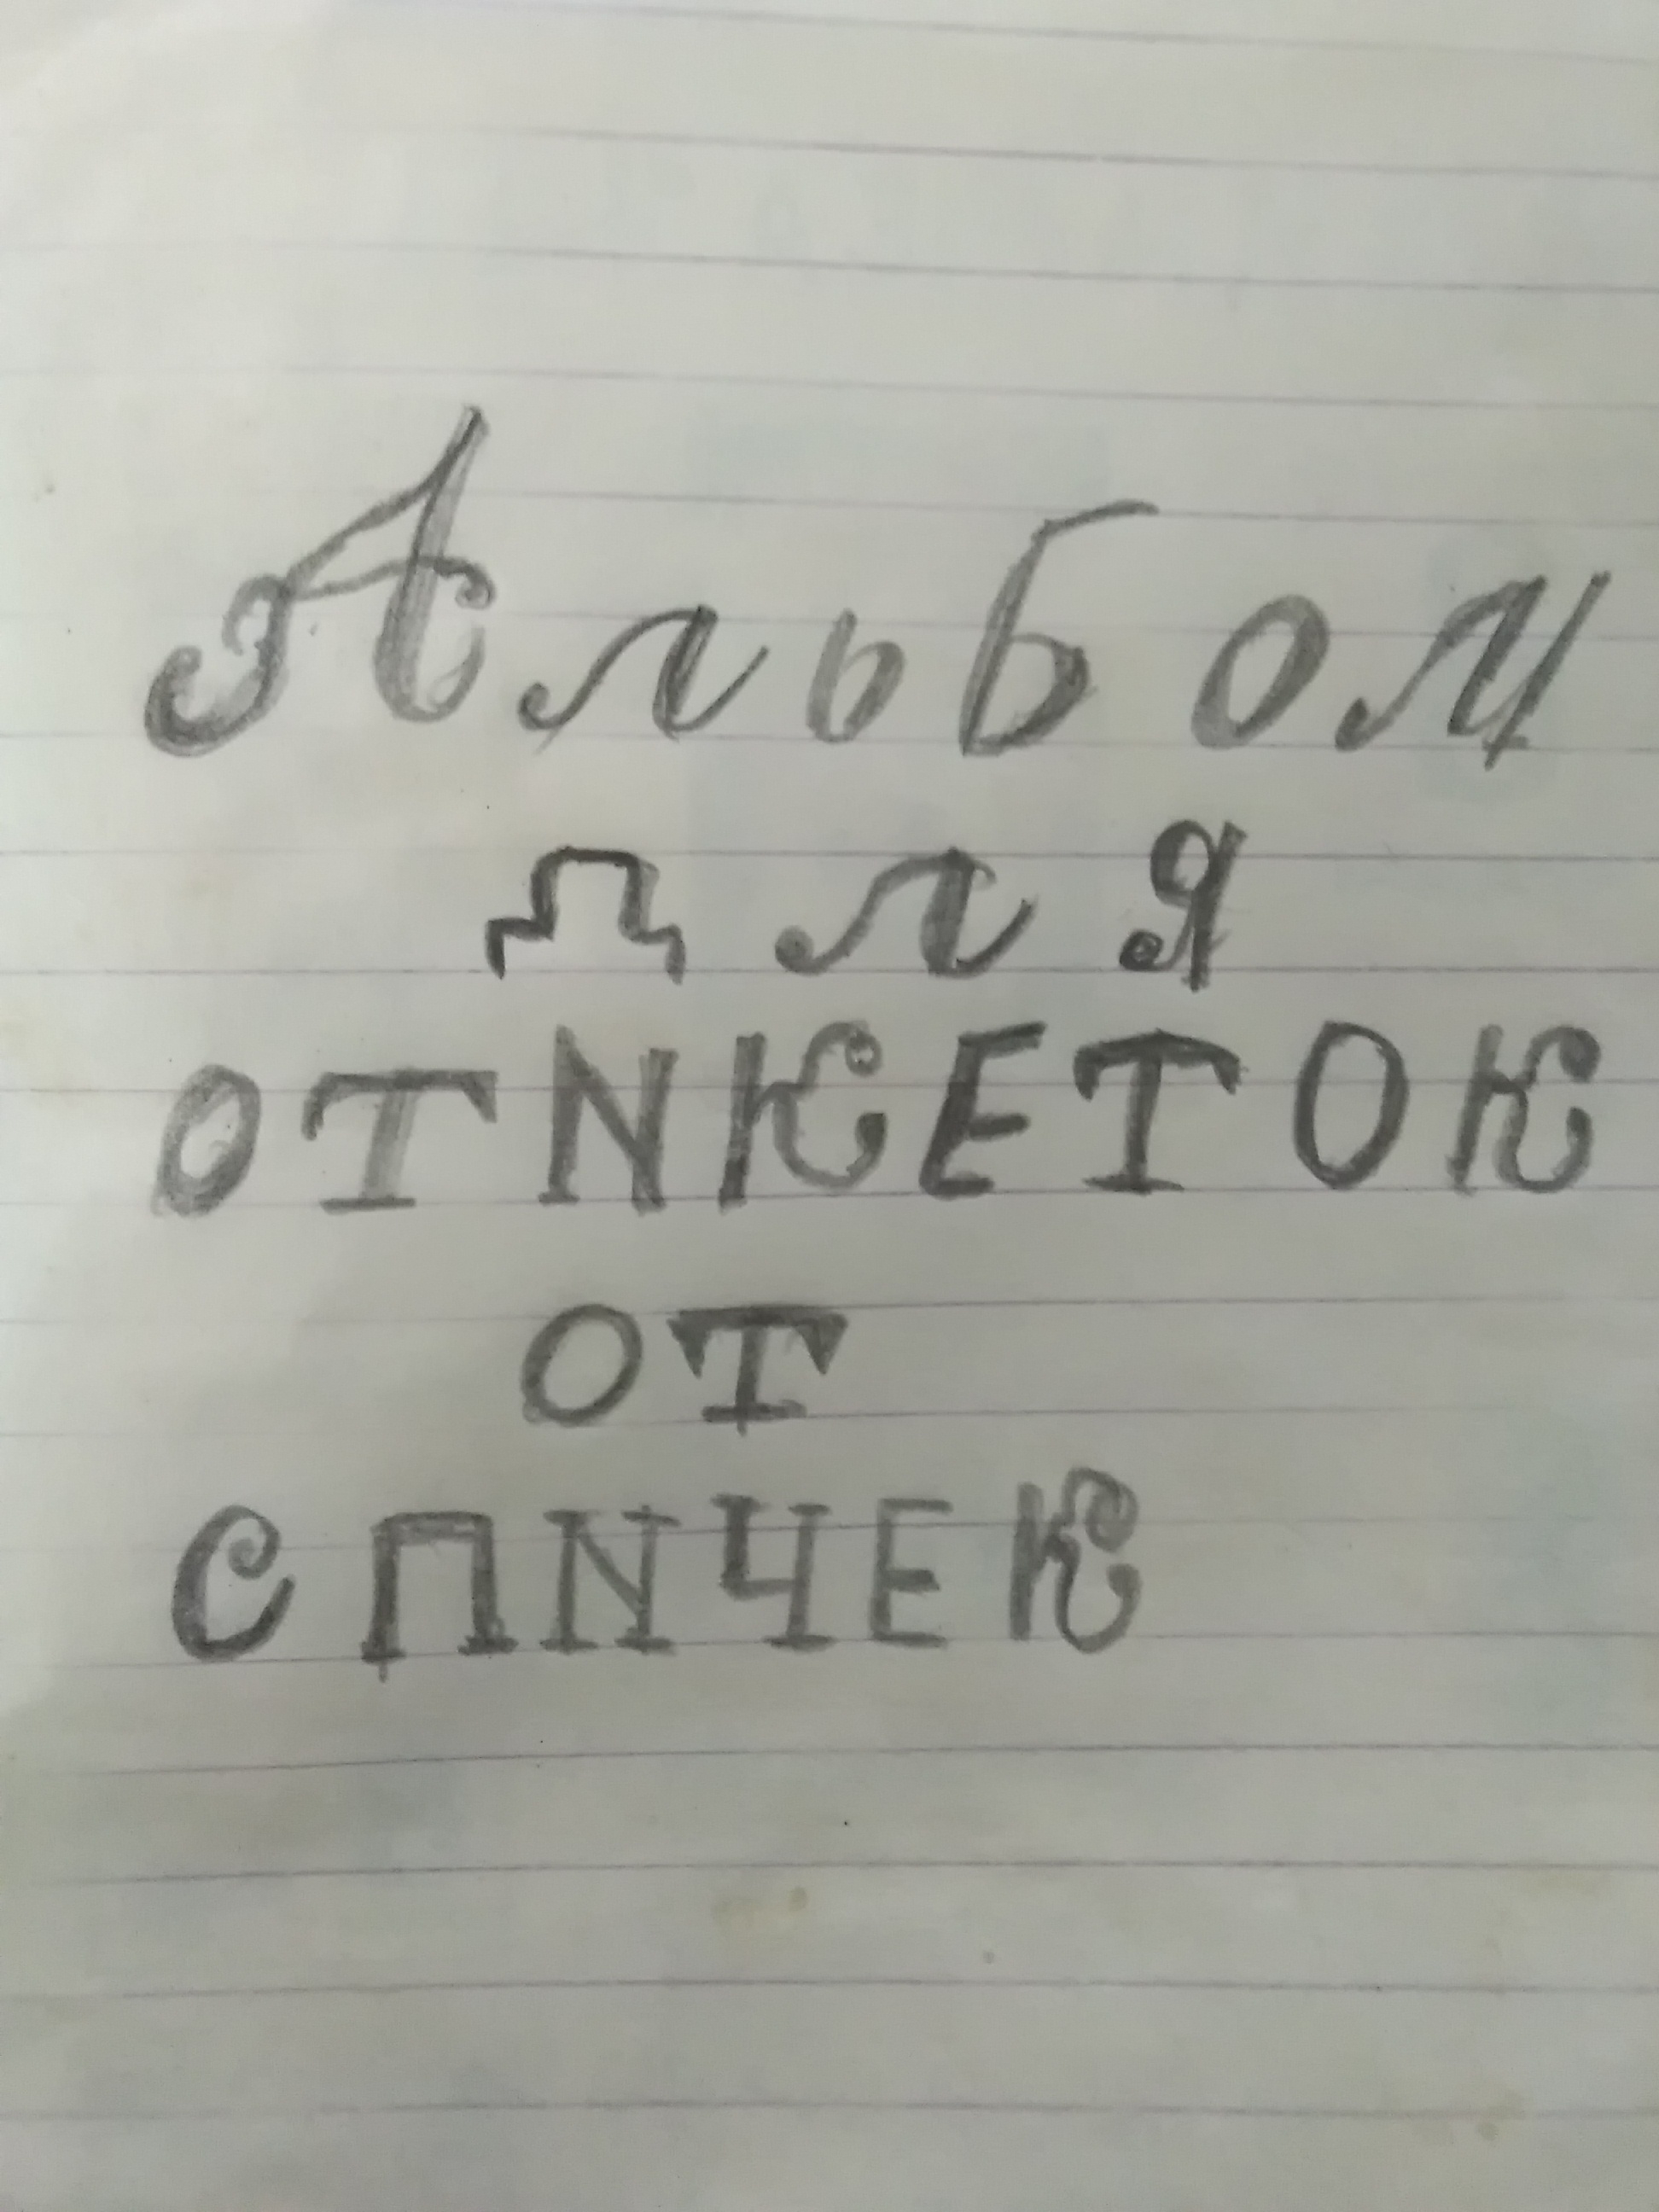 Альбом
для
отNкеток
от
спNчек